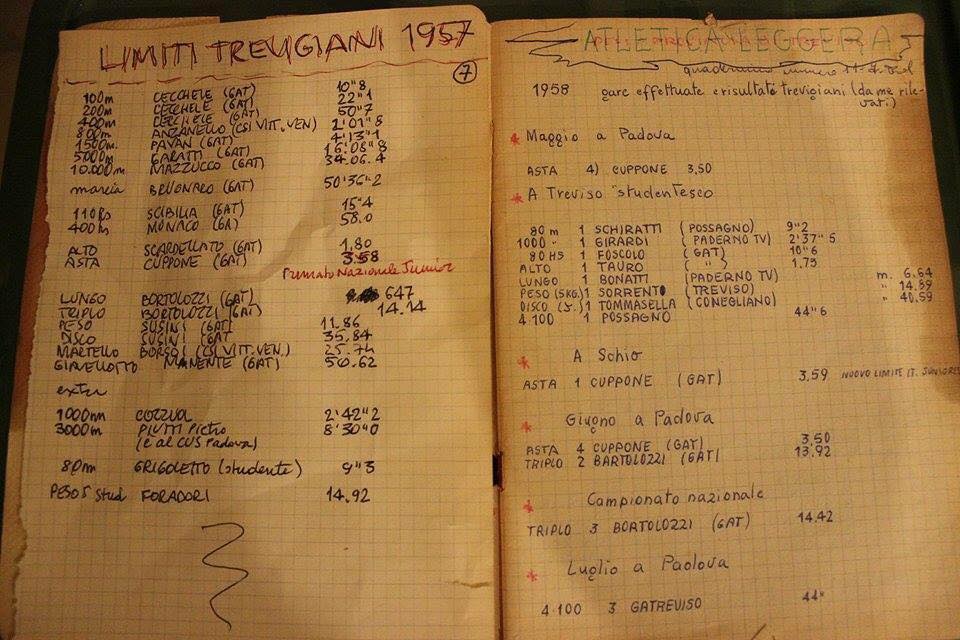 LIMITI TREVIGIANI 1957
7
100m CECCHELE (GAT) 10"8
200m CECCHELE (GAT) 22"1
400m CECCHELE (GAT) 50"7
800m ANZANELLO (CSI VITT. VEN) 2'01"8
1500m. PAVAN (GAT) 4'13"1
5000m GARATTI (GAT) 16'08"8
10.000m MAZZUCCO (GAT) 34.06.4
marcia BRUGNARO (GAT) 50'36"2
110hs SCIBILIA (GAT) 15"4
400hs MONACO (GA) 58.0
ALTO SCARDELLATO (GAT) 1.80
ASTA CUPPONE (GAT) 3.58
Primato Nazionale Junior
LUNGO BORTOLOZZI (GAT) 647
TRIPLO BORTOLOZZI (GAT) 14.14
PESO SUSINI (GAT) 11.86
DISCO SUSINI (GAT 35.84
MARTELLO BORSOI (CSI VITT. VEN.) 25.74
GIAVELLOTTO MANENTE (GAT) 50.62
extra
1000m COZZUOL 2'42"2
3000m PIUTTI Pietro 8'30"0
(è al CUS Padova)
80m GRIGOLETTO (studente) 9"3
PESO 5 Stud FORADORI 14.92
ATLETICA LEGGERA
quaderno numero 11
1958 gare effettuate e risultati trevigiani (da me rile-
vati.)
* Maggio a Padova
ASTA 4) CUPPONE 3,50
* A Treviso "studentesco
80 m 1 SCHIRATTI (POSSAGNO) 9"2
1000 " 1 GIRARDI (PADERNO TV) 2'37"5
80 HS 1 FOSCOLO (GAT) 10"6
ALTO 1 TAURO ( " ) 1.75
LUNGO 1 BONATTI (PADERNO TV) m. 6.64
PESO (5KG.) 1 SORRENTO (TREVISO) " 14.89
DISCO (") 1 TOMMASELLA (CONEGLIANO) " 40.59
4.100 1 POSSAGNO 44"6
* A Schio
ASTA 1 CUPPONE (GAT) 3,59 NUOVO LIMITE IT. JUNIORES
* Giugno a Padova
ASTA 4 CUPPONE (GAT) 3.50
TRIPLO 2 BARTOLOZZI (GAT) 13,92
* Campionato nazionale
TRIPLO 3 BORTOLOZZI (GAT) 14.42
* Luglio a Padova
4.100 3 GATREVISO 44"